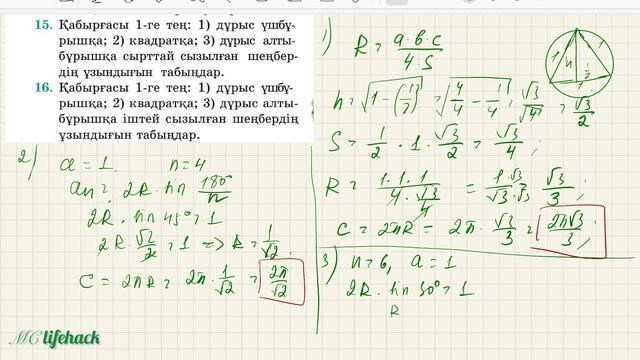 15. Қабырғасы 1-ге тең: 1) дұрыс үшбұ-
рышқа; 2) квадратқа; 3) дұрыс алты-
бұрышқа сырттай сызылған шеңбер-
дің ұзындығын табыңдар.
16. Қабырғасы 1-ге тең: 1) дұрыс үшбұ-
рышқа; 2) квадратқа; 3) дұрыс алты-
бұрышқа іштей сызылған шеңбердің
ұзындығын табыңдар.
1)
R = a·b·c / 4·S
h = √(1 − (1/2)²) = √(4/4 − 1/4) = √3/√4 = √3/2
S = 1/2 · 1 · √3/2 = √3/4 ;
R = 1·1·1 / (4 · √3/4) = 1·√3 / √3·√3 = √3/3 ;
C = 2πR = 2π · √3/3 = 2π√3/3 ;
1 h 1 1/2 1
2)
a = 1 n = 4
an = 2R · sin 180°/n
2R · sin 45° = 1
2R · √2/2 = 1 => R = 1/√2 .
C = 2πR = 2π · 1/√2 = 2π/√2
3) n = 6, a = 1
2R · sin 30° = 1
R
MC lifehack